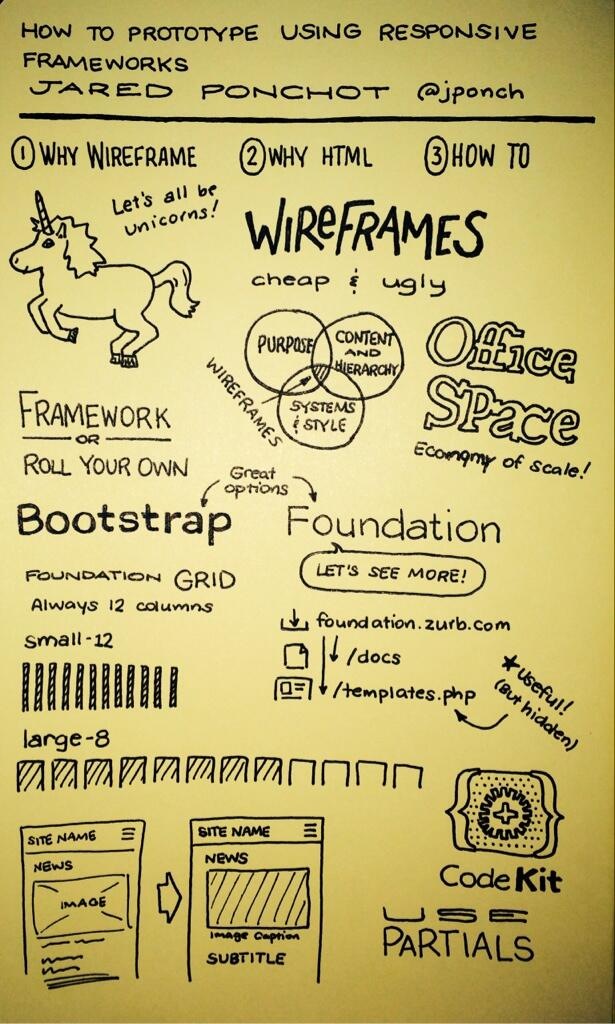 HOW TO PROTOTYPE USING RESPONSIVE
FRAMEWORKS
JARED PONCHOT @jponch
① WHY WIREFRAME
② WHY HTML
③ HOW TO
Let's all be
unicorns!
WIREFRAMES
cheap & ugly
PURPOSE
CONTENT
AND
HIERARCHY
SYSTEMS
& STYLE
WIREFRAMES
Office
Space
Economy of scale!
FRAMEWORK
OR
ROLL YOUR OWN
Great
options
Bootstrap
Foundation
LET'S SEE MORE!
FOUNDATION GRID
Always 12 columns
small-12
large-8
foundation.zurb.com
/docs
/templates.php
★ useful!
(But hidden)
SITE NAME
NEWS
IMAGE
SITE NAME
NEWS
Image Caption
SUBTITLE
CodeKit
USE
PARTIALS